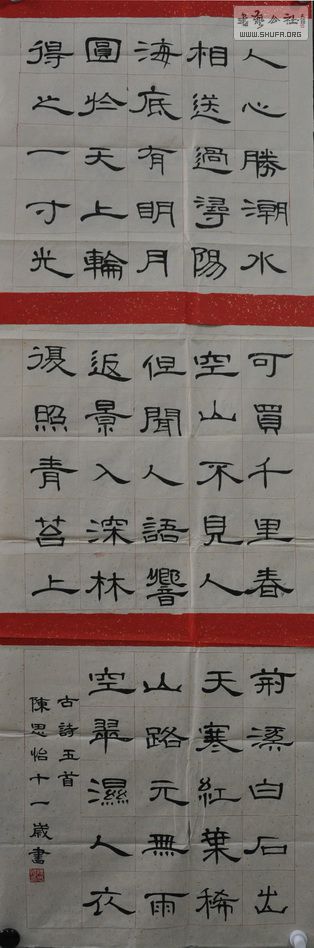 書藝公社
WWW.SHUFA.ORG
人心勝潮水
相送過潯陽
海底有明月
圓於天上輪
得之一寸光
可買千里春
空山不見人
但聞人語響
返景入深林
復照青苔上
荊溪白石出
天寒紅葉稀
山路元無雨
空翠濕人衣
古詩五首
陳思怡十一歲書